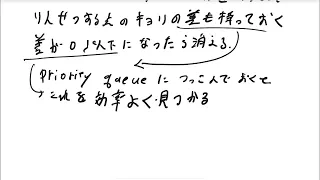 りんせつする人のキョリの差も持っておく
差が0以下になったら消える.
priority queueにつっこんでおくと
これを効率よく見つかる